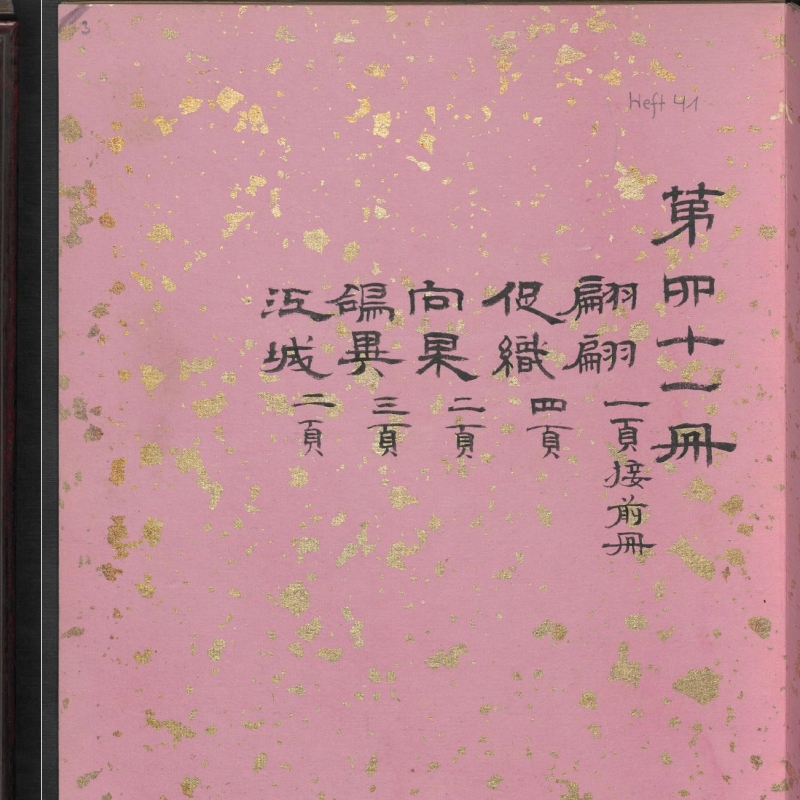 3
Heft 41
第卌十一冊
翩翩 一頁接前冊
促織 四頁
向果 二頁
鴿異 三頁
江城 二頁